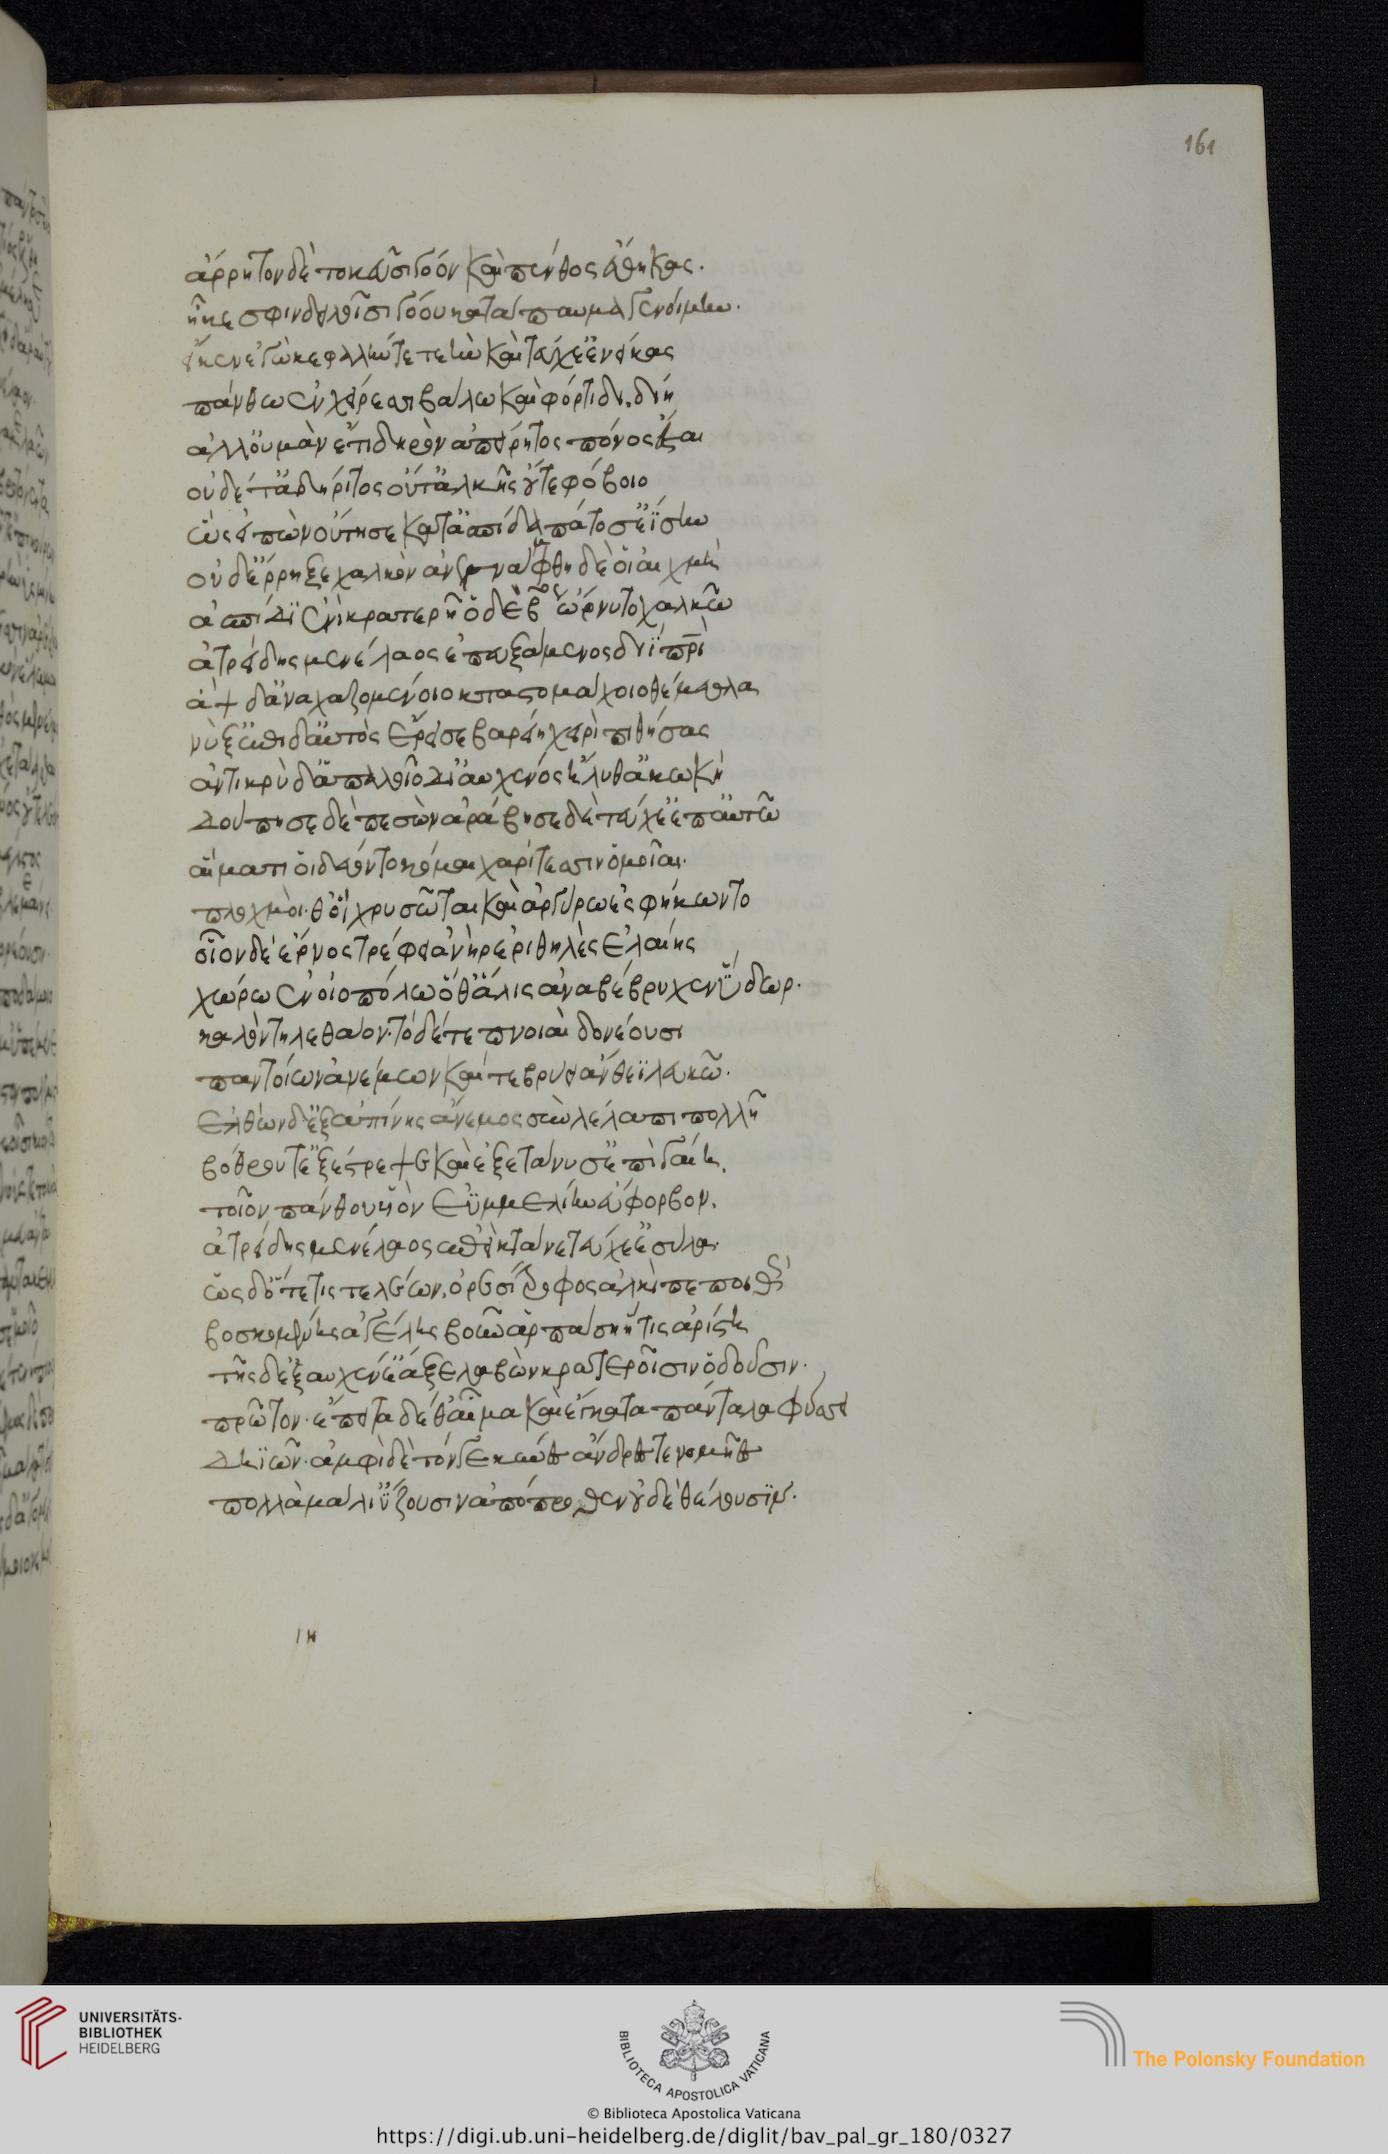 161
ἀρρητὸν δὲ τοκεῦσι γόον καὶ πένθος ἔθηκας.
ἦ κε σφιν δειλοῖσι γόου κατάπαυμα γενοίμην.
εἴ κεν ἐγὼ κεφαλήν τε τεὴν καὶ τεύχε' ἐνείκας
πάνθω ἐν χείρεσι βάλω καὶ φρόντιδι δίῃ
ἀλλ' οὐ μὰν ἔτι δηρὸν ἀπείρητος πόνος ἔσται
οὐδέ τ' ἀδήριτος οὔτ' ἀλκῆς οὔτε φόβοιο
ὣς εἰπὼν οὔτησε κατ' ἀσπίδα πάντοσ' ἐΐσην
οὐδ' ἔρρηξε χαλκὸν ἀνεγνάμφθη δὲ οἱ αἰχμὴ
ἀσπίδι ἐνὶ κρατερῇ ὁ δὲ δεύτερος ὤρνυτο χαλκῷ
ἀτρείδης μενέλαος ἐπευξάμενος διῒ πατρὶ
ἂψ δ' ἀναχαζομένοιο κατὰ στομάχοιο θέμεθλα
νὺξ' ἐπὶ δ' αὐτὸς ἔρεισε βαρείῃ χειρὶ πιθήσας
ἀντικρὺ δ' ἁπαλοῖο δι' αὐχένος ἤλυθ' ἀκωκή
δούπησε δὲ πεσὼν ἀράβησε δὲ τεύχε' ἐπ' αὐτῷ
αἵματι οἱ δεύοντο κόμαι χαρίτεσσιν ὁμοῖαι.
πλοχμοί. θ' οἳ χρυσῷ τε καὶ ἀργύρῳ ἐσφήκωντο
οἷον δὲ ἔρνος τρέφει ἀνὴρ ἐριθηλὲς ἐλαίης
χώρω ἐν οἰοπόλω ὅθ' ἅλις ἀναβέβρυχεν ὕδωρ.
καλὸν τηλεθάον. τὸ δέ τε πνοιαὶ δονέουσι
παντοίων ἀνέμων καί τε βρύει ἄνθεϊ λευκῷ.
ἐλθὼν δ' ἐξαπίνης ἄνεμος σὺν λέλαπι πολλῇ
βόθρου τ' ἐξέστρεψε καὶ ἐξετάνυσ' ἐπὶ γαίη.
τοῖον πάνθου υἱὸν ἐϋμμελίην εὔφορβον.
ἀτρείδης μενέλαος ἐπεὶ κτάνε τεύχε' ἐσύλα.
ὡς δ' ὅτε τις τε λέων. ὀρεσίτροφος ἀλκὶ πεποιθώς
βοσκομένης ἀγέλης βοῦν ἁρπάσῃ ἥτις ἀρίστη
τῆς δ' ἐξ αὐχέν' ἔαξε λαβὼν κρατεροῖσιν ὀδοῦσιν.
πρῶτον. ἔπειτα δέ θ' αἷμα καὶ ἔγκατα πάντα λαφύσσει
δηϊῶν. ἀμφὶ δὲ τόνγε κύνες ἄνδρες τε νομῆες
πολλὰ μάλ' ἰΰζουσιν ἀπόπροθεν οὐδ' ἐθέλουσιν.
ιη
UNIVERSITÄTS-
BIBLIOTHEK
HEIDELBERG
BIBLIOTECA APOSTOLICA VATICANA
The Polonsky Foundation
© Biblioteca Apostolica Vaticana
https://digi.ub.uni-heidelberg.de/diglit/bav_pal_gr_180/0327